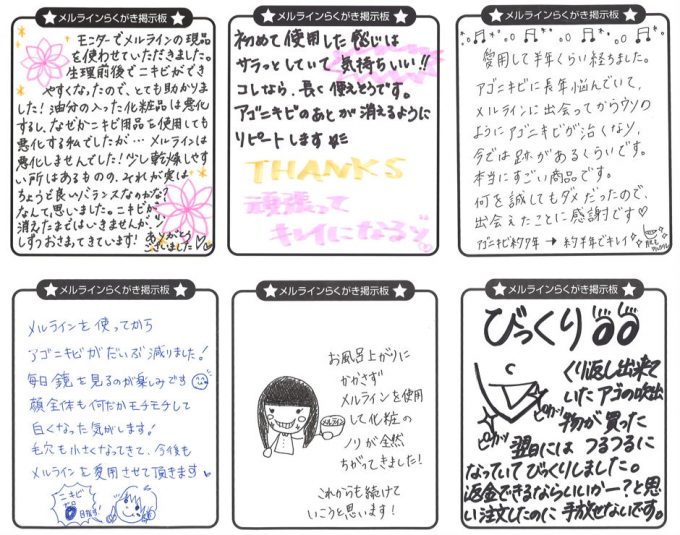 ★メルラインらくがき掲示板★
モニターでメルラインの現品
を使わせていただきました。
生理前後でニキビができ
やすくなったので、とても助かりま
した！油分の入った化粧品は悪化
するし、なぜかニキビ用品を使用しても
悪化する私でしたが…メルラインは
悪化しませんでした！少し乾燥しやす
い所はあるものの、みれが実は
ちょうど良いバランスなのかな？
なんて思いました。ニキビが
消えたまではいきませんが、
しずつおさまってきています！
ありがとう
ございました♡
★メルラインらくがき掲示板★
初めて使用した感じは
サラっとしていて気持ちいい!!
コレなら、長く使えそうです。
アゴニキビのあとが消えるように
リピートします
THANKS
頑張って
キレイになるゾ
★メルラインらくがき掲示板★
愛用して半年くらい経ちました。
アゴニキビに長年悩んでいて、
メルラインに出会ってからウソの
ようにアゴニキビが治くなり、
今では跡があるくらいです。
本当にすごい商品です。
何を試してもダメだったので、
出会えたことに感謝です♡
アゴニキビ約7年→約半年でキレイ
★メルラインらくがき掲示板★
メルラインを使ってから
アゴニキビがだいぶ減りました！
毎日鏡を見るのが楽しみです
顔全体も何だかモチモチして
白くなった気がします！
毛穴も小さくなってきて、今後も
メルラインを愛用させて頂きます
ニキビ
ゼロ
目指す！
★メルラインらくがき掲示板★
お風呂上がりに
かかさず
メルラインを使用
して化粧の
ノリが全然
ちがってきました！
メルライン
これからも続けて
いこうと思います！
★メルラインらくがき掲示板★
びっくり
くり返し出来て
いたアゴの吹出
物が買った
翌日には つるつるに
なっていてびっくりしました。
返金できるならいいかー？と思
い注文したのに手放せないです。
ピカッ
ピカッ